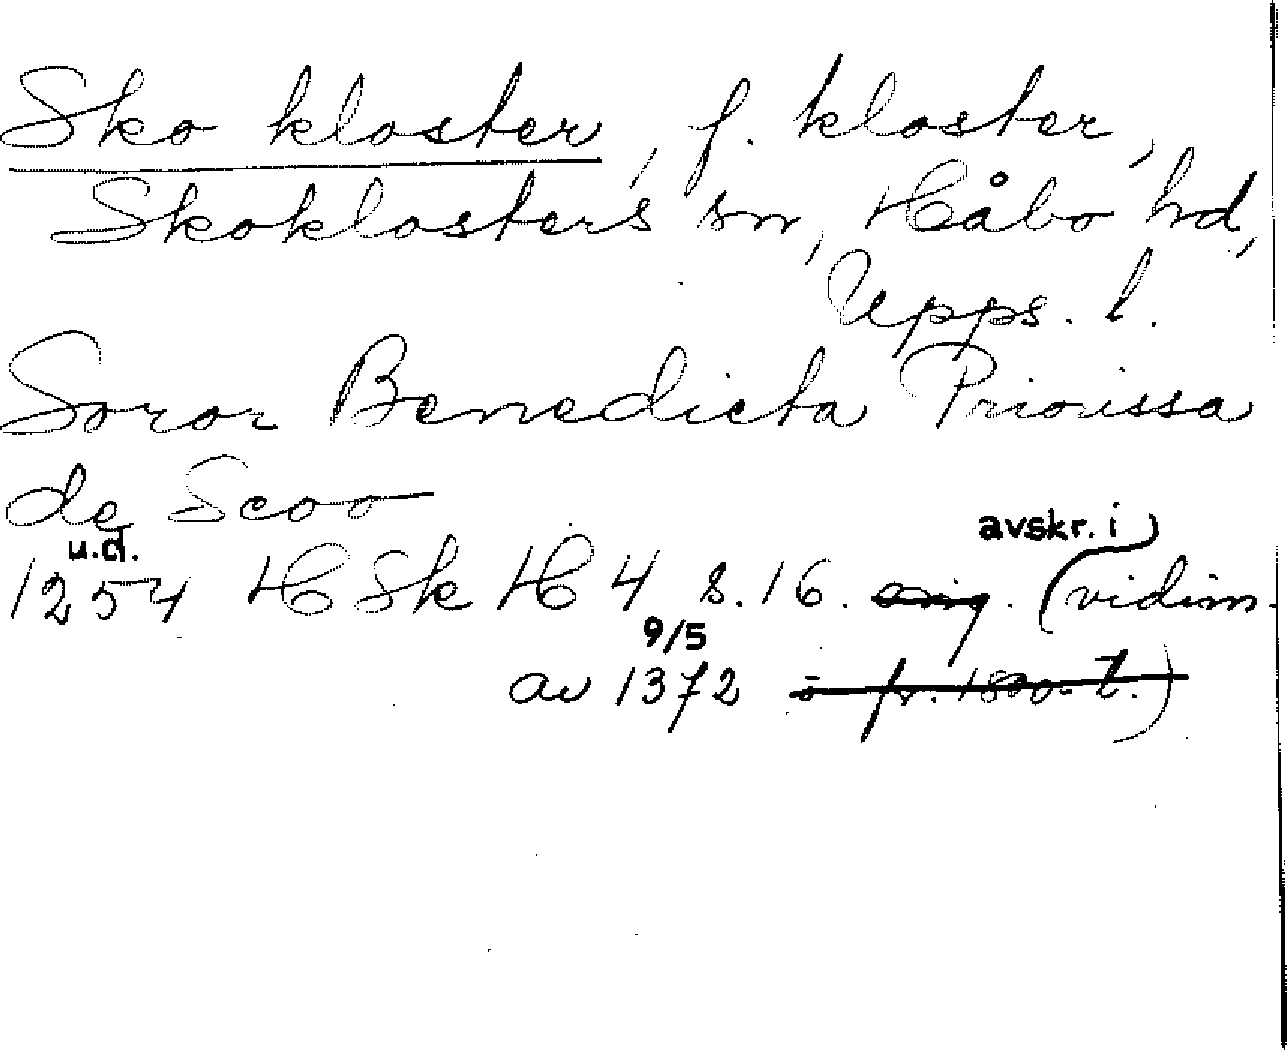 Sko kloster, f. kloster,
Skoklosters sn, Håbo hd,
Upps. l.
Soror Benedicta Priorissa
de Scoo
u.d. avskr. i
1254 H Sk H 4 s. 16. orig. (vidim.
9/5
av 1372 o fr. 1800-t.)